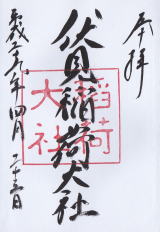 奉拝
伏見稲荷大社
平成二十九年四月二十三日
稲荷
大社